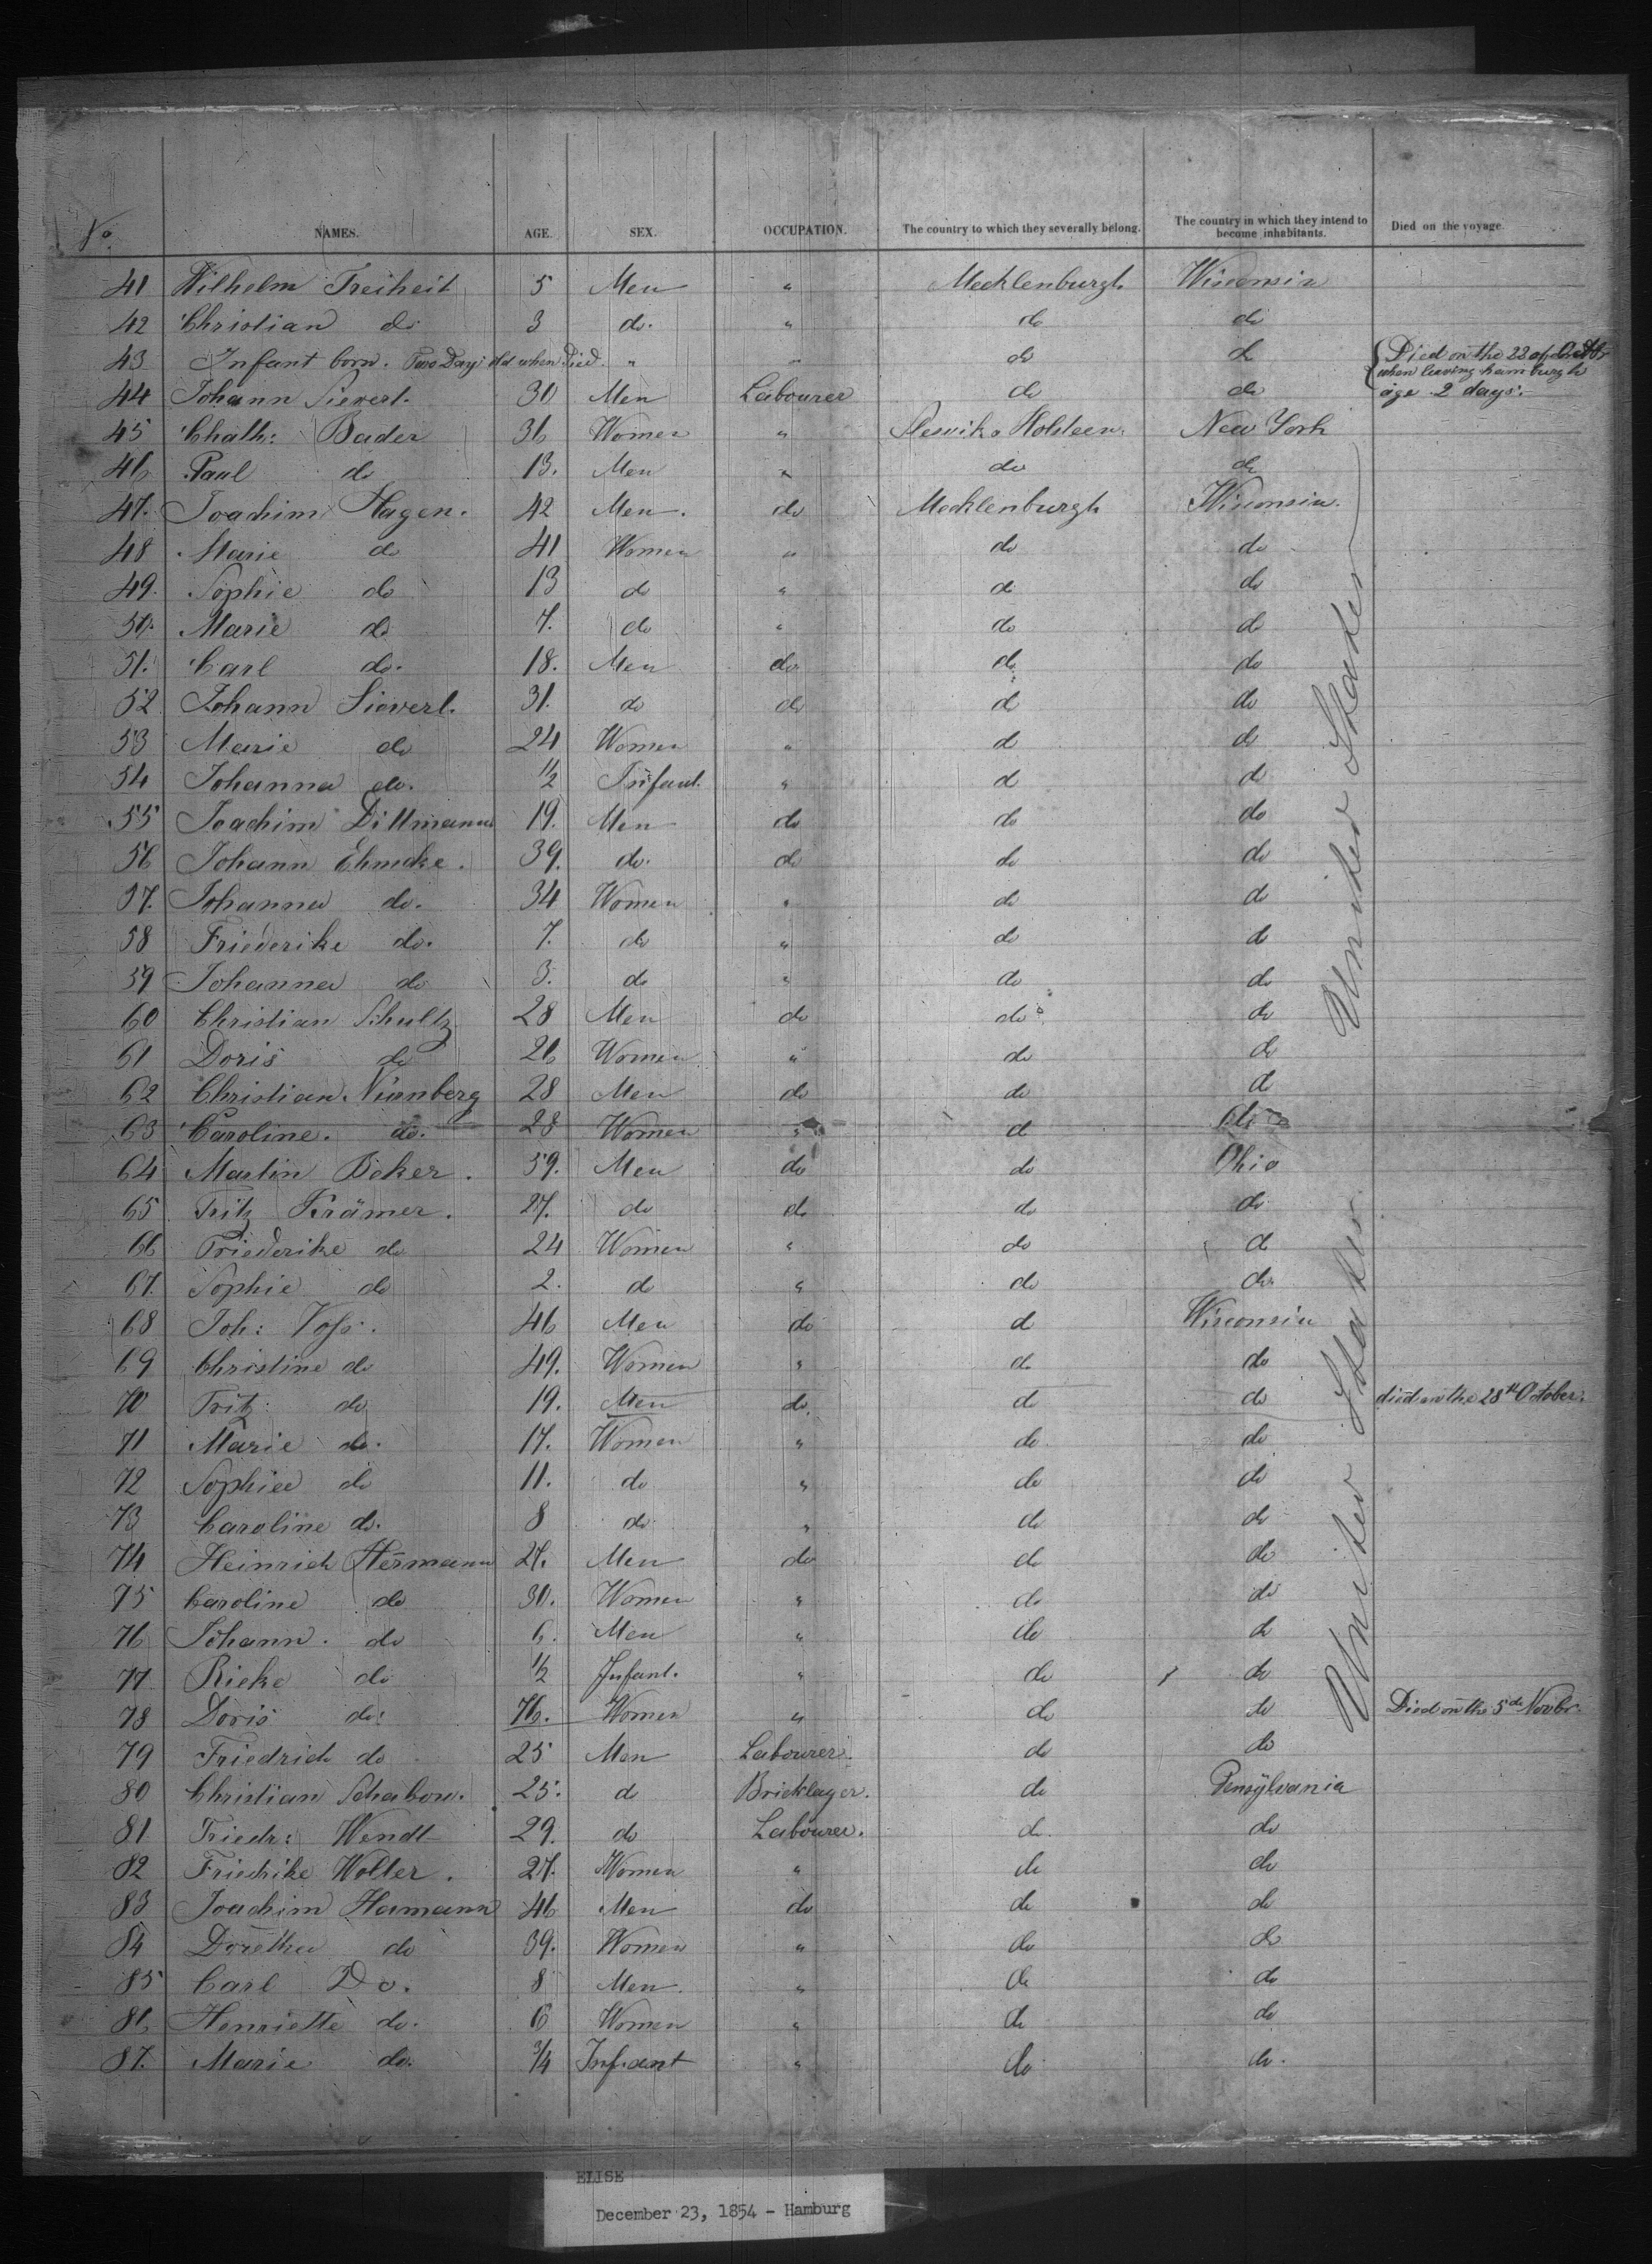 No. NAMES. AGE. SEX. OCCUPATION. The country to which they severally belong. The country in which they intend to become inhabitants. Died on the voyage.
41 Wilhelm Freiheit 5 Men " Mecklenburgh Wisconsin
42 Christian do 3 do. " do do
43 Infant born. Two Days old when Died. " " do do Died on the 22 of Octbr when leaving hamburgh
44 Johann Sievert. 30 Men Labourer do do age 2 days.
45 Chath: Bader 36 Women " Holsteen. New York
46 Paul do 13. Men " do do
47. Joachim Hagen. 42 Men. do Mecklenburgh Wisconsin.
48 Marie do 41 Women " do do
49. Sophie do 13 do " do do
50. Marie do 7. do " do do
51. Carl do. 18. Men do do do
52 Johann Sievert. 31. do do do do
53 Marie do 24 Women " do do
54 Johanna do. 1/2 Infant. " do do
55 Joachim Dittmann 19. Men do do do
56 Johann Ehmcke. 39. do. do do do
57. Johanna do. 34 Women " do do
58 Friederike do. 7. do " do do
59 Johanna do 3. do " do do
60 Christian Schultz 28 Men do do do
61 Doris do 26 Women " do do
62 Christian Nürnberg 28 Men do do do
63 Caroline. do. 28 Women " do do
64 Martin Beker. 59. Men do do Ohio
65 Fritz Krämer. 27. do do do do
66 Friederike do 24 Women " do do
67. Sophie do 2. do " do do
68 Joh: Voss. 46 Men do do Wisconsin
69 Christine do 49. Women " do do
70 Fritz do 19. Men do. do do died on the 28th October.
71 Marie do. 17. Women " do do
72 Sophie do 11. do " do do
73 Caroline do. 8 do " do do
74 Heinrich Hermann 27. Men do do do
75 Caroline do 30. Women " do do
76 Johann. do 6. Men " do do
77 Rieke do 1/2 Infant. " do do
78 Doris do: 76. Women " do do Died on the 5de Novbr.
79 Friedrich do 25 Men Labourer. do do
80 Christian Schabow. 25. do Bricklayer. do Pensylvania
81 Friedr: Wendt 29. do Labourer. do do
82 Friedrike Wolter. 27. Women " do do
83 Joachim Hamann 46 Men do do do
84 Dorethea do 39. Women " do do
85 Carl Do. 8 Men. " do do
86 Henriette do. 6 Women " do do
87. Marie do. 3/4 Infant " do do.
United States
United States
ELISE
December 23, 1854 - Hamburg